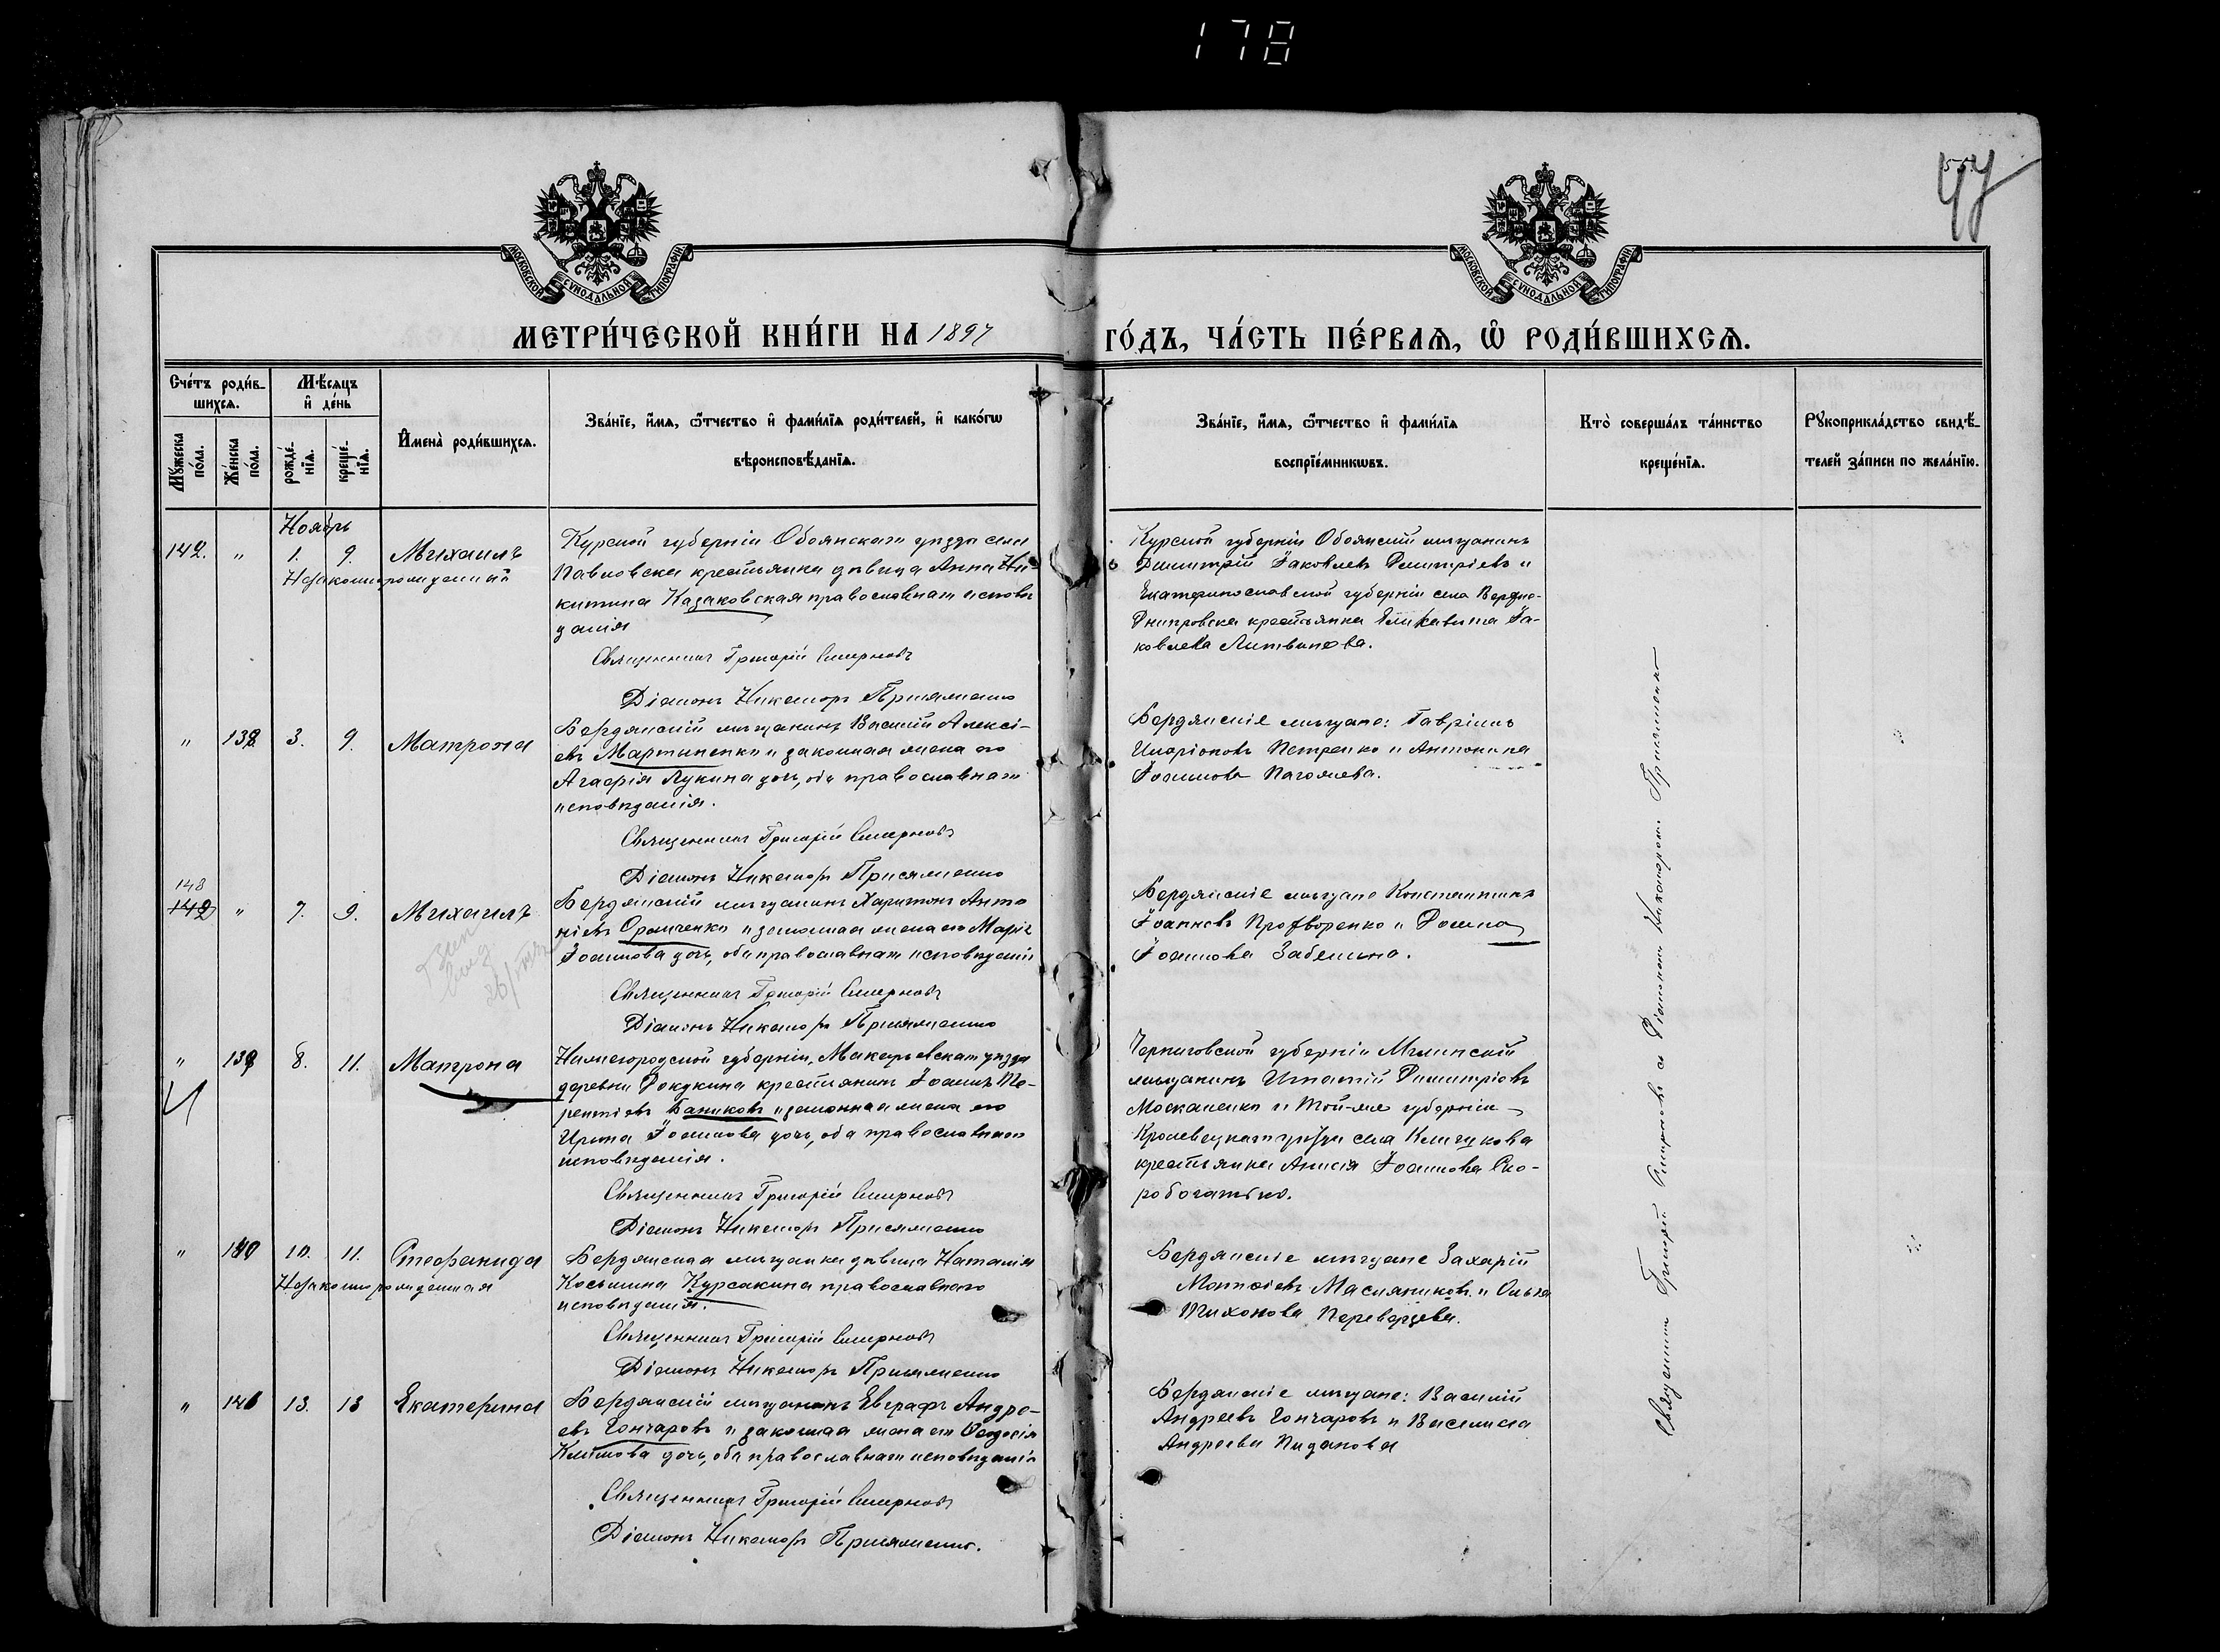 178
97
МОСКОВСКОЙ СѴНОДАЛЬНОЙ ТИПОГРАФІИ
МОСКОВСКОЙ СѴНОДАЛЬНОЙ ТИПОГРАФІИ
МЕТРИ́ЧЕСКОЙ КНИ́ГИ НА 1897
ГО́ДЪ, ЧА́СТЬ ПЕ́РВАѦ, Ѡ҆ РОДИ́ВШИХСѦ.
Сче́тъ роди́в-
шихсѧ.
Мѣ́сѧцъ
и҆ де́нь
Мꙋ́жеска по́ла.
Же́нска по́ла.
рожде́-нїѧ.
креще́-нїѧ.
И҆мена̀ роди́вшихсѧ.
Зва́нїе, и҆́мѧ, ѻ҆́тчество и҆ фами́лїѧ роди́телей, и҆ како́гѡ
вѣроисповѣ́данїѧ.
Зва́нїе, и҆́мѧ, ѻ҆́тчество и҆ фами́лїѧ
воспрїе́мникѡвъ.
Кто̀ соверша́лъ та́инство
креще́нїѧ.
Рꙋкоприкла́дство свидѣ́-
телей за́писи по жела́нїю.
Ноябрь
142. " 1. 9. Михаилъ
Незаконнорожденный
Курской губерніи Обоянскаго уѣзда села
Павловска крестьянка дѣвица Анна Ни-
китина Казаковская православнаго исповѣ
данія
Священникъ Григорій Смирновъ
Діаконъ Никаноръ Присяженко
Курской губерніи Обоянскій мѣщанинъ
Димитрій Іаковлевъ Димитріевъ и
Екатеринославской губерніи села Верхне-
Днипровска крестьянка Елисавета Іа-
ковлева Литвинова.
" 138 3. 9. Матрона
Бердянскій мѣщанинъ Василій Алексі-
евъ Мартиненко и законная жена его
Агафія Лукина дочь, оба православнаго
исповѣданія.
Священникъ Григорій Смирновъ
Діаконъ Никаноръ Присяженко
Бердянскіе мѣщане: Гавріилъ
Иларіоновъ Петренко и Антонина
Іоаннова
148
142 " 7. 9. Михаилъ
Бердянскій мѣщанинъ Харитонъ Анто
ніевъ и законная жена его Марія
Іоаннова дочь, оба православнаго исповѣданія
Священникъ Григорій Смирновъ
Діаконъ Никаноръ Присяженко
Бердянскіе мѣщане Константинъ
Іоанновъ и Домна
Іоаннова Забелина.
" 139 8. 11. Матрона
Нижегородской губерніи, Макарьевскаго уѣзда
деревни Докукина крестьянинъ Іоаннъ Те-
рентіевъ Баниковъ и законная жена его
Ирина Іоаннова дочь, оба православнаго
исповѣданія.
Священникъ Григорій Смирновъ
Діаконъ Никаноръ Присяженко
Черниговской губерніи Мглинскій
мѣщанинъ Игнатій Димитріевъ
Москаленко и той-же губерніи
Кролевецкаго уѣзда села Клишкова
крестьянка Анисія Іоаннова Ско-
робогатько.
" 140 10. 11. Стефанида
Незаконнорожденная
Бердянская мѣщанка дѣвица Наталія
Косьмина Курсакина православнаго
исповѣданія.
Священникъ Григорій Смирновъ
Діаконъ Никаноръ Присяженко
Бердянскіе мѣщане Захарій
Матфіевъ Масляниковъ и Ольга
Тихонова Переварзева.
" 141 13. 13 Екатерина
Бердянскій мѣщанинъ Евграфъ Андре-
евъ Гончаровъ и законная жена его Ѳеодосія
Климова дочь, оба православнаго исповѣданія
Священникъ Григорій Смирновъ
Діаконъ Никаноръ Присяженко.
Бердянскіе мѣщане: Василій
Андреевъ Гончаровъ и Василиса
Андреева Пиданова
Священникъ Григорій Смирновъ съ Діакономъ Никаноромъ Присяженко